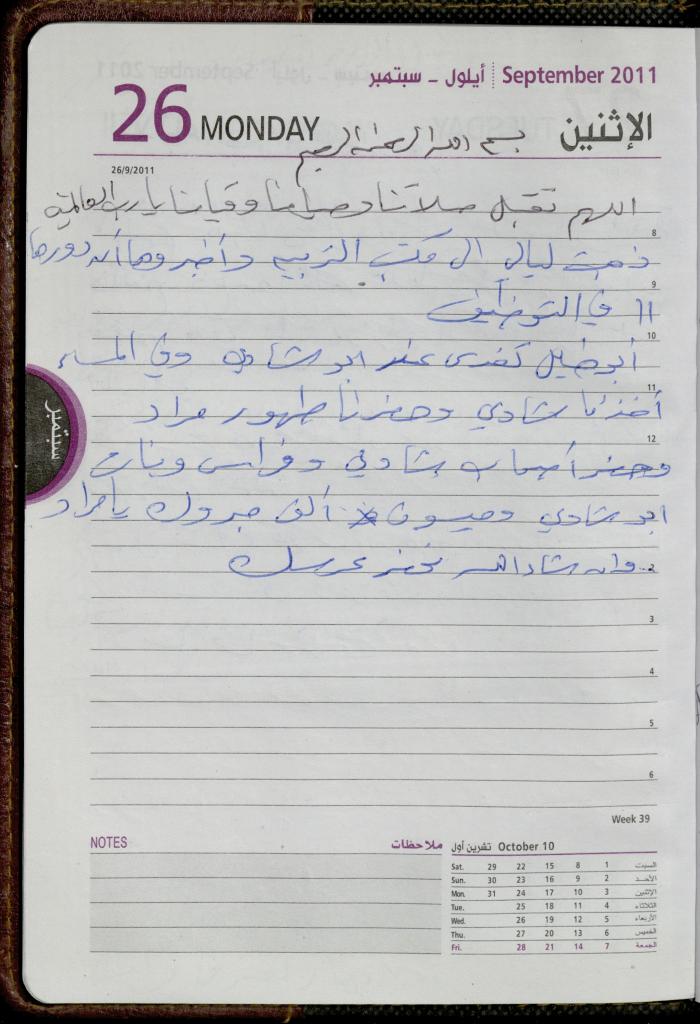 أيلول - سبتمبر September 2011
26 MONDAY الإثنين
بسم الله الرحمن الرحيم
26/9/2011
اللهم تقبل صلاتنا وصيامنا وقيامنا يا رب العالمين
8
ذهبت ليالي الى مكتب التربيه وأخبروها أنه دورها
9
11 في التوظيف
10
أبو خليل تغدى عند ابو شادي وفي المساء
11
أخذنا شادي وحضرنا طهور مراد
12
وحضر أصحاب شادي وفراس
ابو شادي وميسون ألف مبروك يا مراد
2
وان شاء الله نحضر عرسك
3
4
5
6
سبتمبر
Week 39
NOTES ملاحظات
October 10 تشرين أول
Sat. 29 22 15 8 1 السبت
Sun. 30 23 16 9 2 الأحد
Mon. 31 24 17 10 3 الإثنين
Tue. 25 18 11 4 الثلاثاء
Wed. 26 19 12 5 الأربعاء
Thu. 27 20 13 6 الخميس
Fri. 28 21 14 7 الجمعة